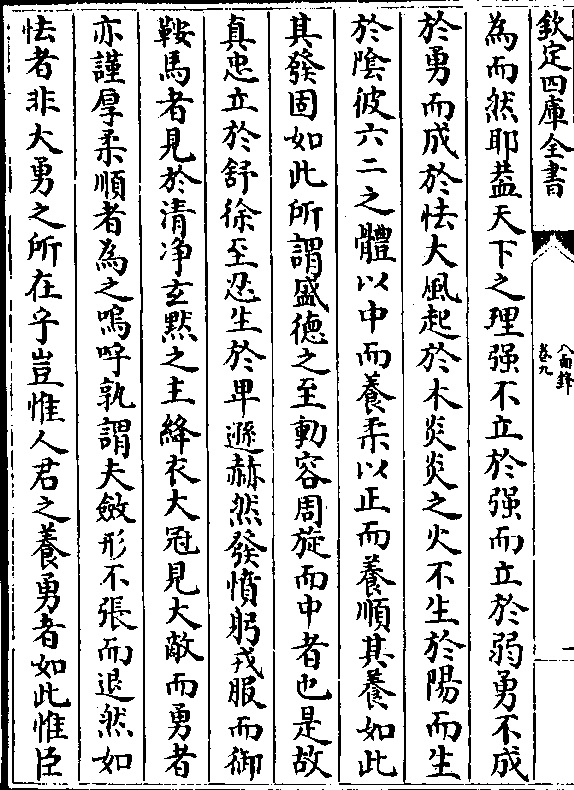 欽定四庫全書
八面鋒
卷九
一
為而然耶葢天下之理强不立於强而立於弱勇不成
於勇而成於怯大風起於木炎炎之火不生於陽而生
於陰彼六二之體以中而養柔以正而養順其養如此
其發固如此所謂盛德之至動容周旋而中者也是故
真忠立於舒徐至忍生於卑遜赫然發憤躬戎服而御
鞍馬者見於清净玄默之主絳衣大冠見大敵而勇者
亦謹厚柔順者為之嗚呼孰謂夫斂形不張而退然如
怯者非大勇之所在乎豈惟人君之養勇者如此惟臣